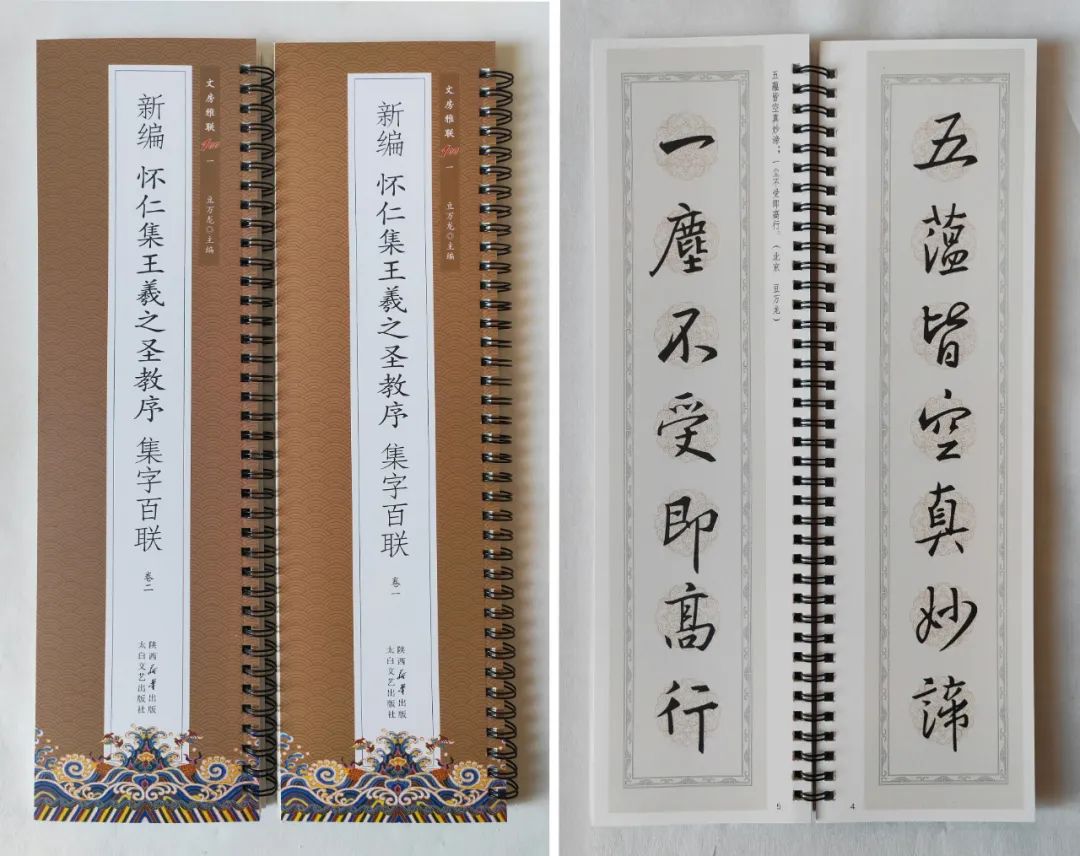 文房雅联
一
豆万龙◎主编
新编 怀仁集王羲之圣教序 集字百联
卷一
陕西新华出版
太白文艺出版社
文房雅联
一
豆万龙◎主编
新编 怀仁集王羲之圣教序 集字百联
卷二
陕西新华出版
太白文艺出版社
五薀皆空真妙諦
4
五蕴皆空真妙谛；一尘不受即高行。（北京 豆万龙）
一塵不受即高行
5